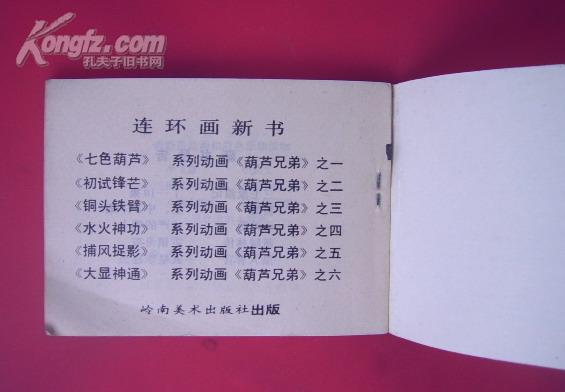 Kongfz.com
孔夫子旧书网
连环画新书
《七色葫芦》 系列动画《葫芦兄弟》之一
《初试锋芒》 系列动画《葫芦兄弟》之二
《铜头铁臂》 系列动画《葫芦兄弟》之三
《水火神功》 系列动画《葫芦兄弟》之四
《捕风捉影》 系列动画《葫芦兄弟》之五
《大显神通》 系列动画《葫芦兄弟》之六
岭南美术出版社出版